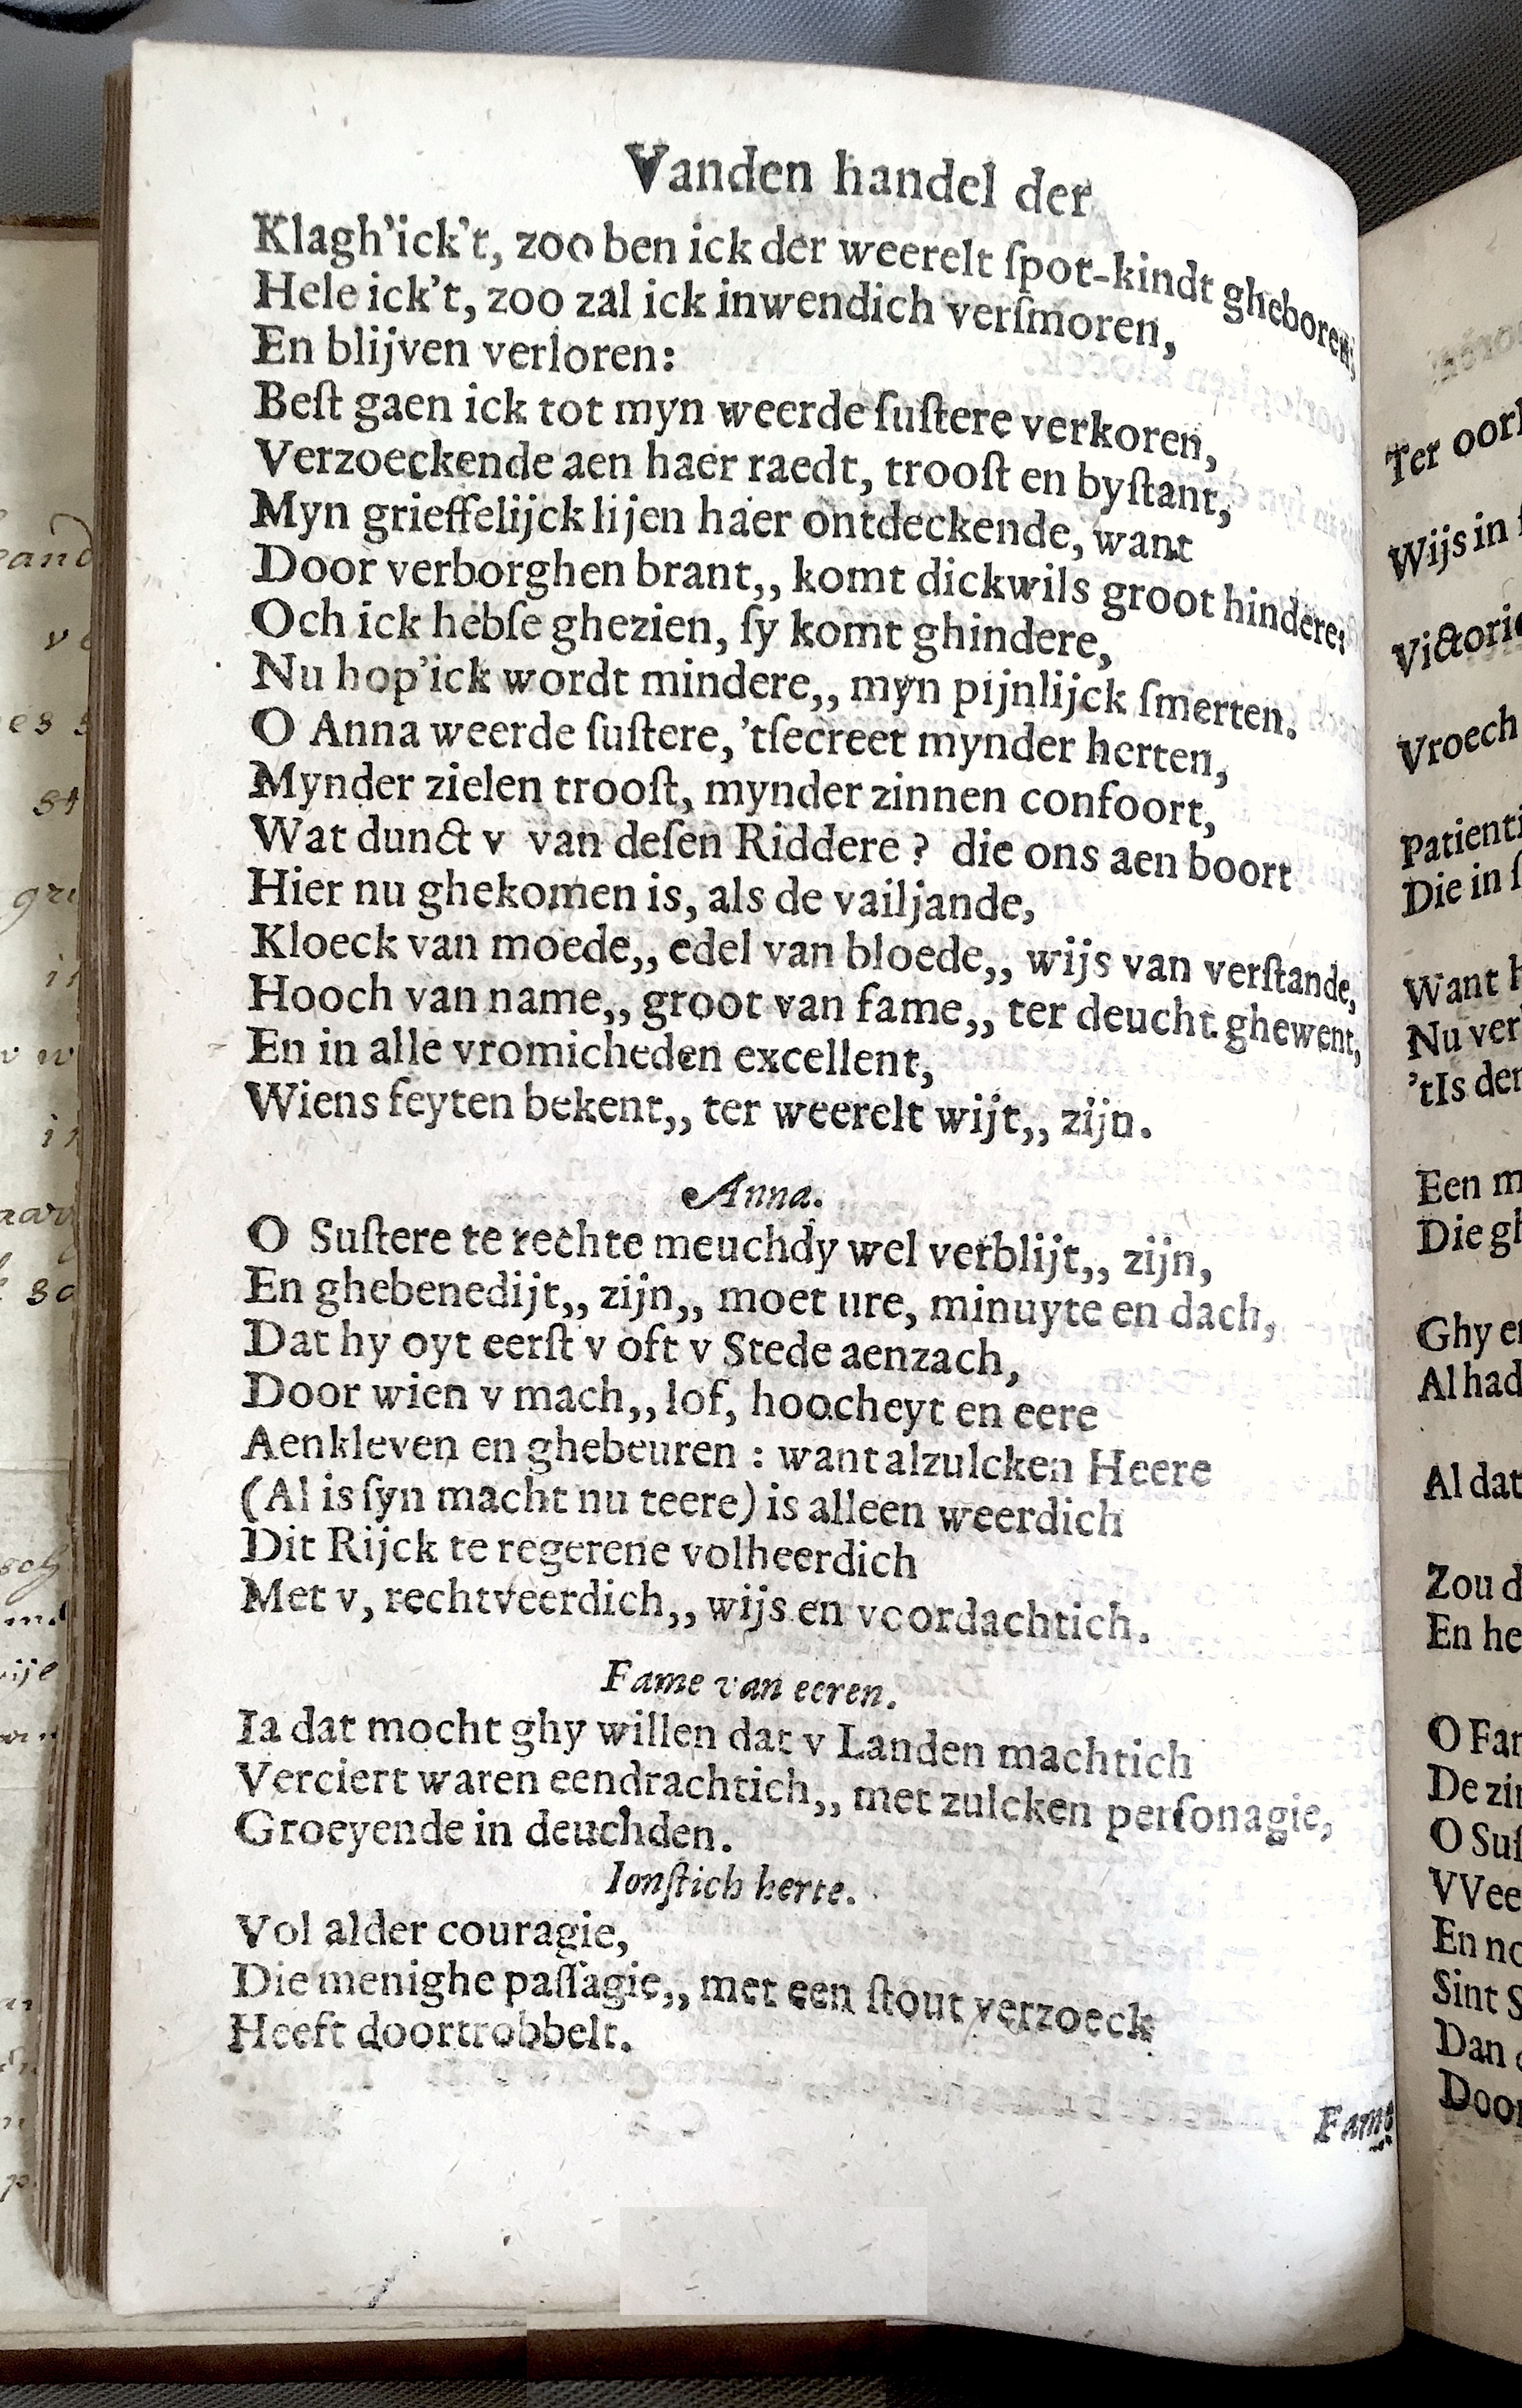 Vanden handel der
Klagh'ick't, zoo ben ick der weerelt ſpot-kindt gheboren;
Hele ick't, zoo zal ick inwendich verſmoren,
En blijven verloren:
Beſt gaen ick tot myn weerde ſuſtere verkoren,
Verzoeckende aen haer raedt, trooſt en byſtant,
Myn grieffelijck lijen haer ontdeckende, want
Door verborghen brant,, komt dickwils groot hindere:
Och ick hebſe ghezien, ſy komt ghindere,
Nu hop'ick wordt mindere,, myn pijnlijck ſmerten.
O Anna weerde ſuſtere, 'tſecreet mynder herten,
Mynder zielen trooſt, mynder zinnen confoort,
Wat dunct v van deſen Riddere? die ons aen boort
Hier nu ghekomen is, als de vailjande,
Kloeck van moede,, edel van bloede,, wijs van verſtande,
Hooch van name,, groot van fame,, ter deucht ghewent,
En in alle vromicheden excellent,
Wiens feyten bekent,, ter weerelt wijt,, zijn.
Anna.
O Suſtere te rechte meuchdy wel verblijt,, zijn,
En ghebenedijt,, zijn,, moet ure, minuyte en dach,
Dat hy oyt eerſt v oft v Stede aenzach,
Door wien v mach,, lof, hoocheyt en eere
Aenkleven en ghebeuren : want alzulcken Heere
(Al is ſyn macht nu teere) is alleen weerdich
Dit Rijck te regerene volheerdich
Met v, rechtveerdich,, wijs en voordachtich.
Fame van eeren.
Ia dat mocht ghy willen dat v Landen machtich
Verciert waren eendrachtich,, met zulcken perſonagie,
Groeyende in deuchden.
Ionſtich herte.
Vol alder couragie,
Die menighe paſſagie,, met een ſtout verzoeck
Heeft doortrobbelt.
Fame
Ter oorl
Wijs in
Victorie
Vroech
Patienti
Die in ſ
Want h
Nu ver
'tIs den
Een m
Die gh
Ghy en
Al had
Al dat
Zou d
En he
O Fam
De zin
O Suſ
VVee
En no
Sint S
Dan
Door